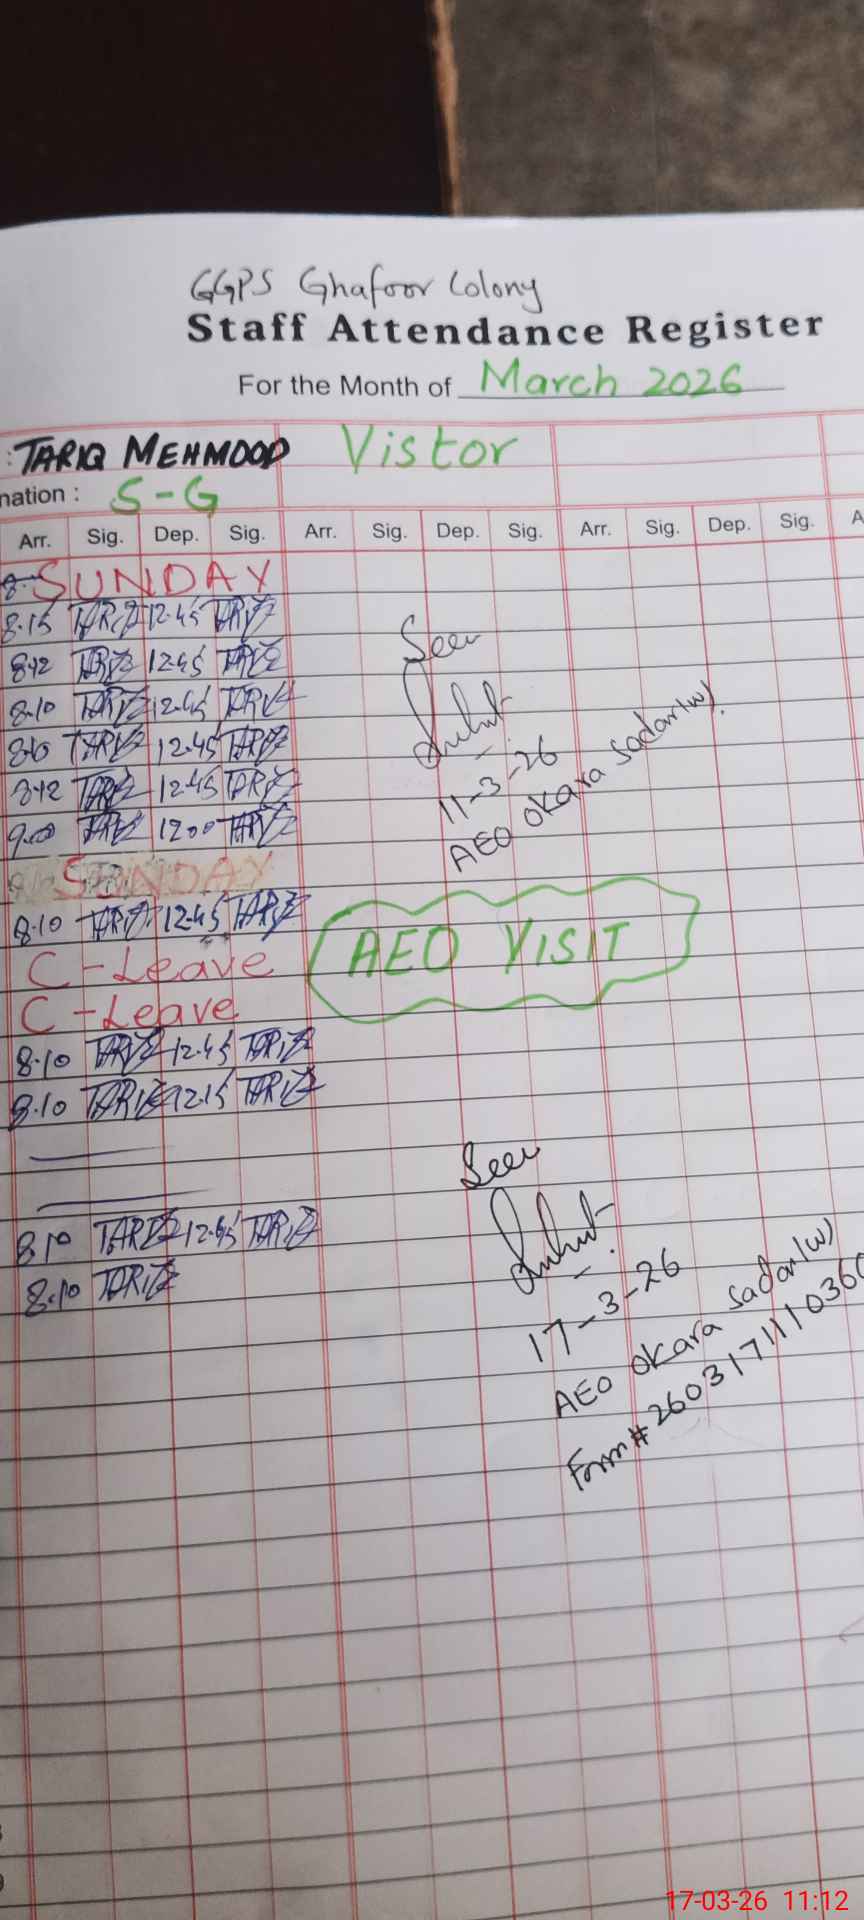 GGPS Ghafoor Colony
Staff Attendance Register
For the Month of March 2026
: TARIQ MEHMOOD Vistor
nation : S-G
Arr. Sig. Dep. Sig. Arr. Sig. Dep. Sig. Arr. Sig. Dep. Sig. A
SUNDAY
8.15 TARIQ 12.45 TARIQ
8.12 TARIQ 12.45 TARIQ
8.10 TARIQ 12.45 TARIQ
8.10 TARIQ 12.45 TARIQ
8.12 TARIQ 12.45 TARIQ
9.00 TARIQ 12.00 TARIQ
SUNDAY
8.10 TARIQ 12.45 TARIQ
C-Leave
C-Leave
8.10 TARIQ 12.45 TARIQ
8.10 TARIQ 12.15 TARIQ
8.10 TARIQ 12.45 TARIQ
8.10 TARIQ
Seen
11-3-26
AEO Okara Sadar(w).
AEO VISIT
Seen
17-3-26
AEO Okara Sadar(w)
Form # 260317111036
17-03-26 11:12